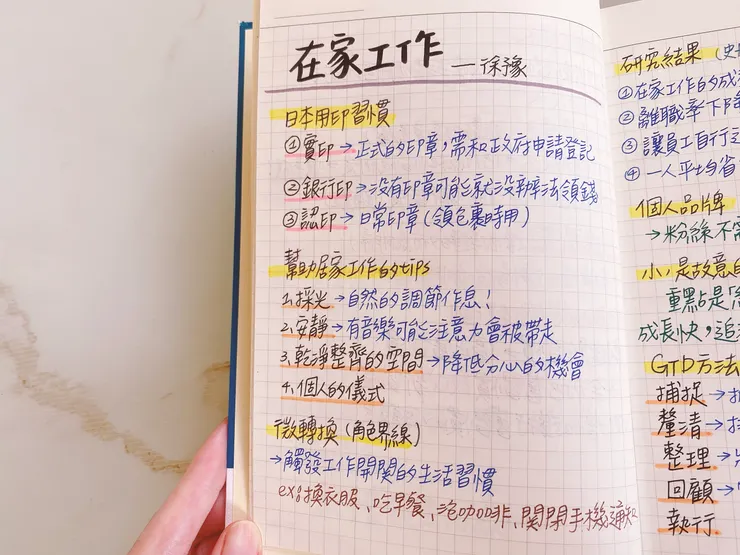 在家工作 — 徐豫
日本用印習慣
①實印→正式的印章,需和政府申請登記
②銀行印→沒有印章可能就沒辦法領錢
③認印→日常印章(領包裹時用)
幫助居家工作的tips
1.採光→自然的調節作息!
2.安靜→有音樂可能注意力會被帶走
3.乾淨整齊的空間→降低分心的機會
4.個人的儀式
微轉換(角色界線)
→觸發工作開關的生活習慣
ex:換衣服、吃早餐、泡咖啡、關閉手機通知
研究結果(史
①在家工作的成
②離職率下降
③讓員工自行
④一人平均省
個人品牌
→粉絲不需
小小是故意的
重點是
成長快,追
GTD方法
捕捉→
釐清→
整理→
回顧→
執行